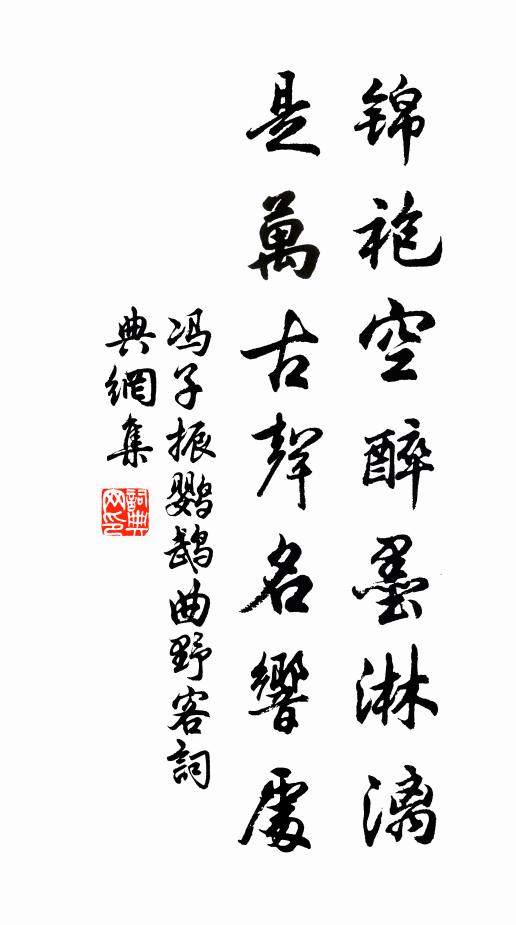 锦袍空醉墨淋漓
是萬古聲名響處
冯子振鹦鹉曲野客詞
典網集
詞典网印